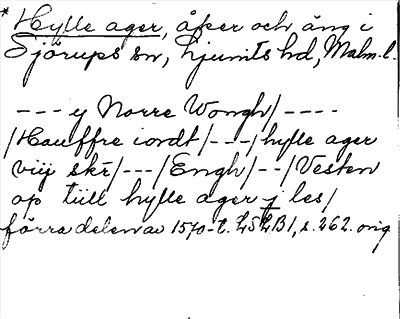 * Hylle ager, åker och äng i
Sjörups sn, Ljunits hd, Malm. l.
--- y Norre Wongh/----
/Hauffre iordt/---/hylle ager
viij skr/---/Engh/--/Vesten
op tiill hylle ager j les/
förra delen av 1570-t. LSLB1, s. 262. orig